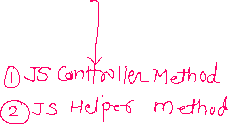 ① JS Controller Method
② JS Helper Method